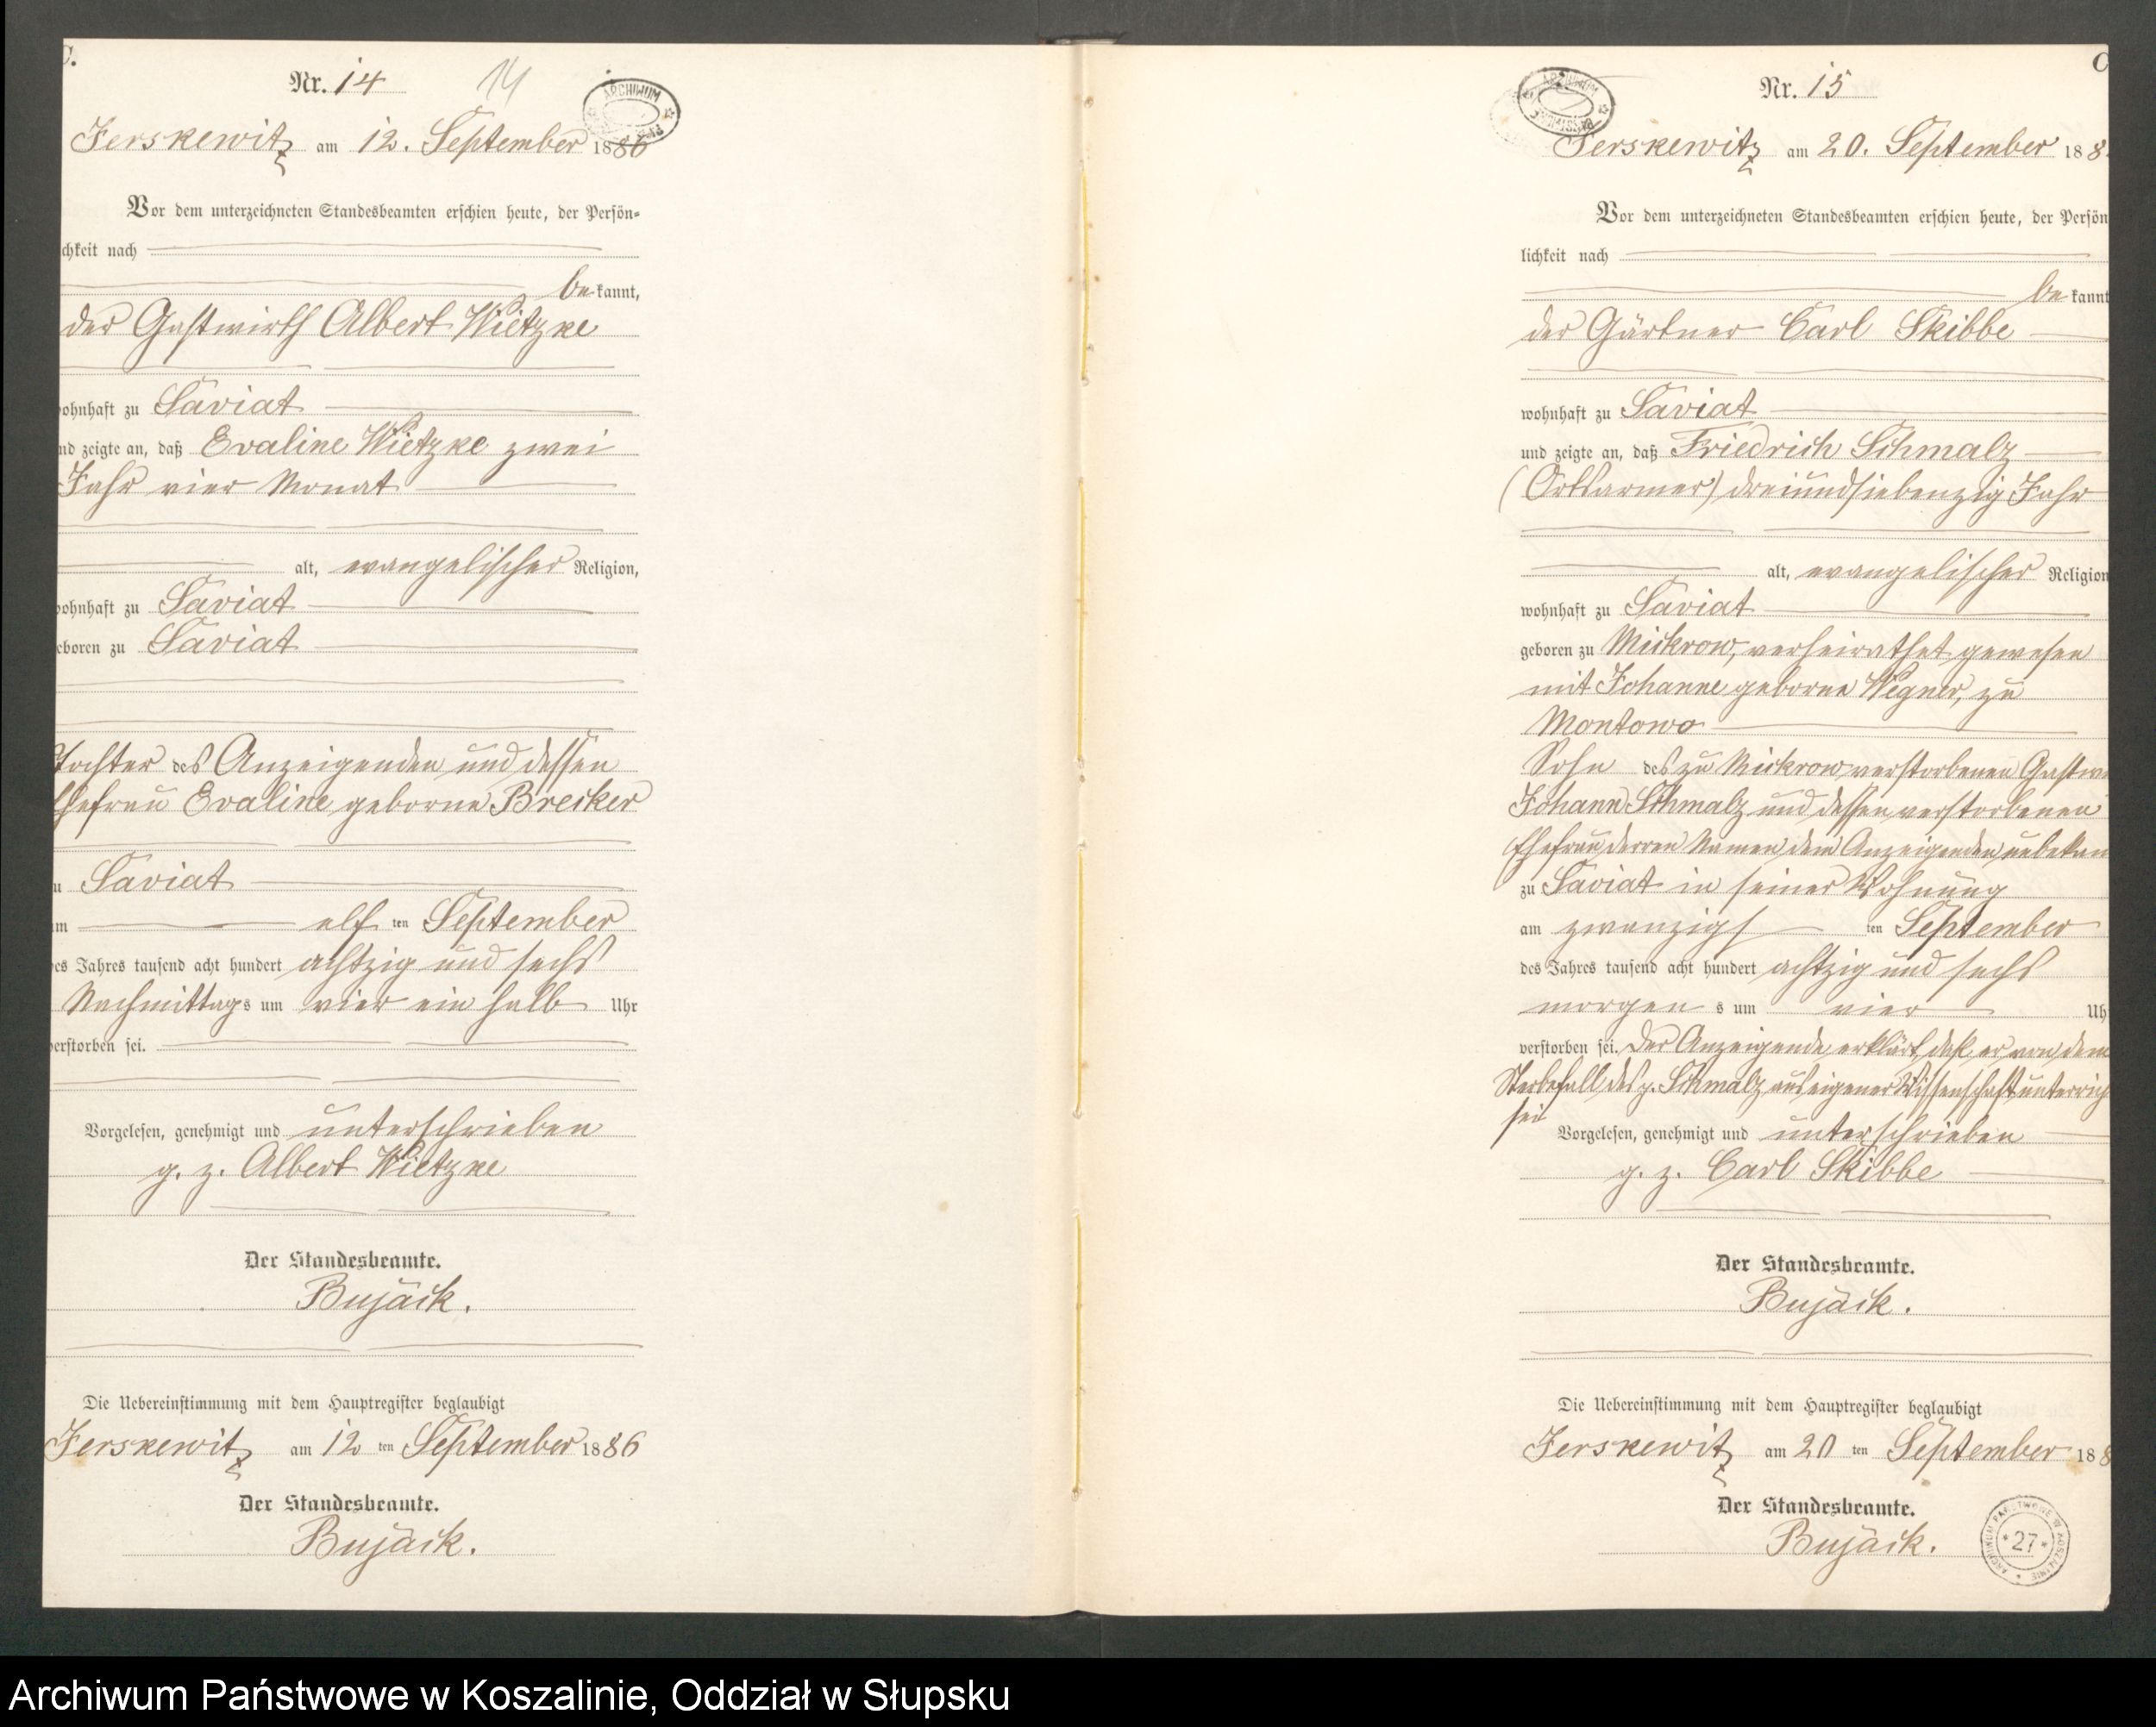 C.
Nr. 14
14
ARCHIWUM
Jerskewitz am 12. September 1886
Vor dem unterzeichneten Standesbeamten erschien heute, der Persön=
chkeit nach
be kannt,
der Gastwirth Albert Wietzke
wohnhaft zu Saviat
und zeigte an, daß Evaline Wietzke zwei
Jahr vier Monat
alt, evangelischer Religion,
wohnhaft zu Saviat
geboren zu Saviat
Tochter des Anzeigenden und dessen
Ehefrau Evaline geborne Brecker
zu Saviat
am elf ten September
des Jahres tausend acht hundert achtzig und sechs
Nachmittags um vier ein halb Uhr
verstorben sei.
Vorgelesen, genehmigt und unterschrieben
g. z. Albert Wietzke
Der Standesbeamte.
Bujäck.
Die Uebereinstimmung mit dem Hauptregister beglaubigt
Jerskewitz am 12 ten September 1886
Der Standesbeamte.
Bujäck.
C
Nr. 15
ARCHIWUM
Jerskewitz am 20. September 188
Vor dem unterzeichneten Standesbeamten erschien heute, der Persön
lichkeit nach
be kannt
der Gärtner Carl Skibbe
wohnhaft zu Saviat
und zeigte an, daß Friedrich Schmalz
(Ortsarmer) dreiundsiebenzig Jahr
alt, evangelischer Religion
wohnhaft zu Saviat
geboren zu Mickrow, verheirathet gewesen
mit Johanne geborne Wegner, zu
Montowo
Sohn des zu Mickrow verstorbenen Gastwi
Johann Schmalz und dessen verstorbenen
Ehefrau, derren Namen dem Anzeigenden unbekan
zu Saviat in seiner Wohnung
am zwanzigs ten September
des Jahres tausend acht hundert achtzig und sechs
morgen s um vier Uh
verstorben sei. Der Anzeigende erklärt, daß er von dem
Sterbefall des p. Schmalz aus eigener Wissenschaft unterrich
sei
Vorgelesen, genehmigt und unterschrieben
g. z. Carl Skibbe
Der Standesbeamte.
Bujäck.
Die Uebereinstimmung mit dem Hauptregister beglaubigt
Jerskewitz am 20 ten September 188
Der Standesbeamte.
Bujäck.
ARCHIWUM PAŃSTWOWE W KOSZALINIE
* 27 *
Archiwum Państwowe w Koszalinie, Oddział w Słupsku